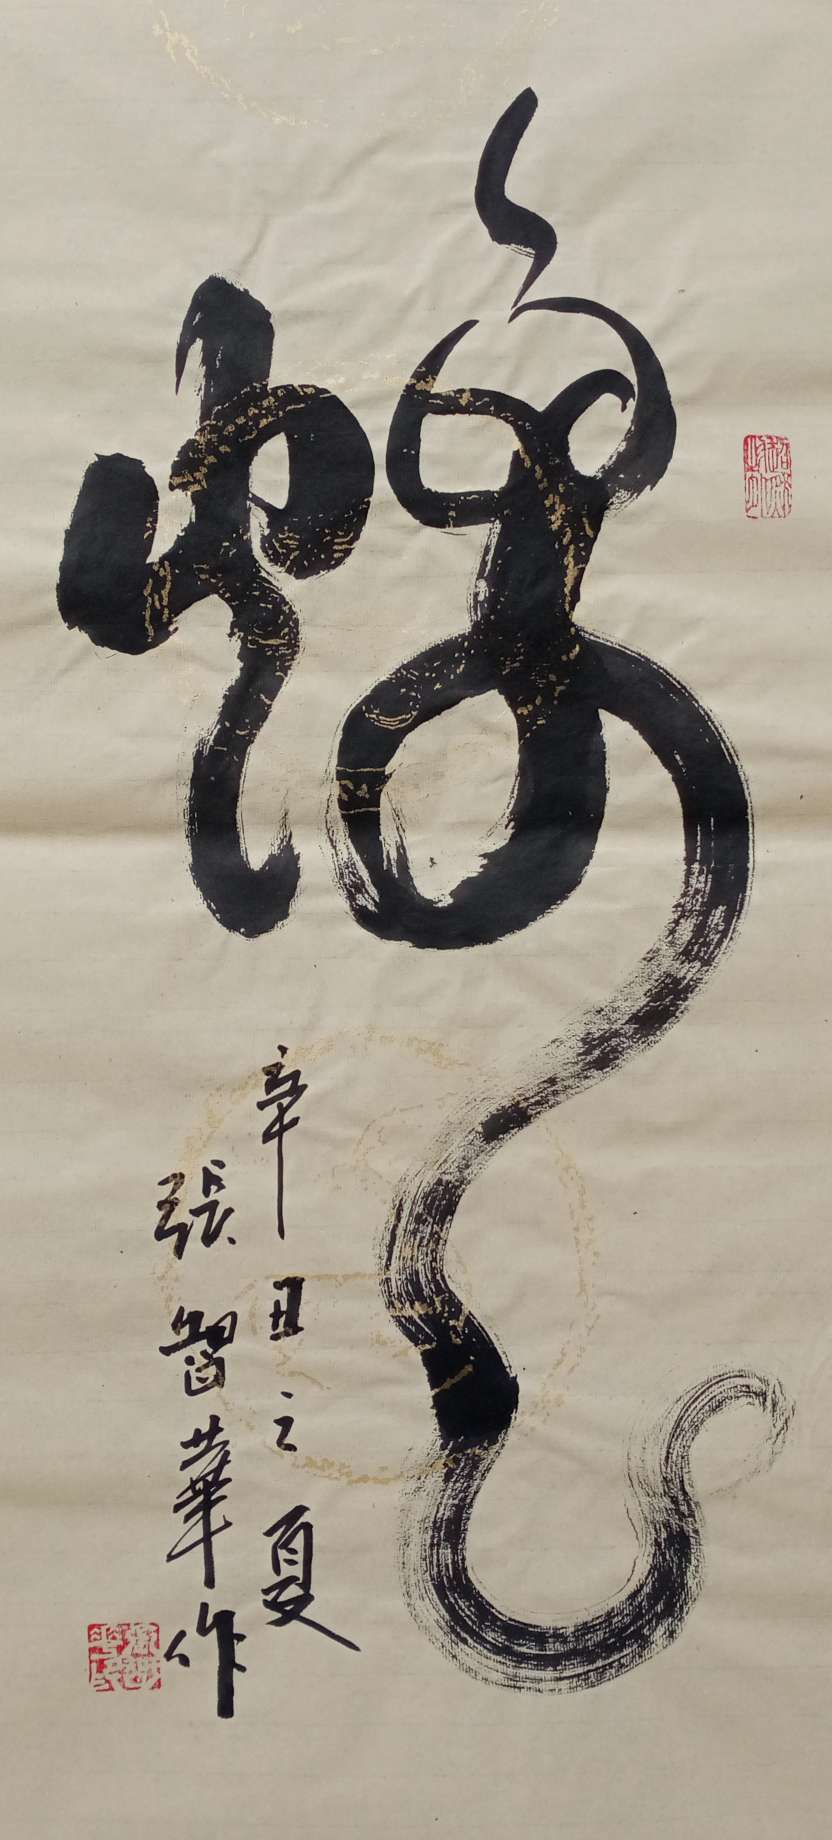 蛇
辛丑之夏
張智華作